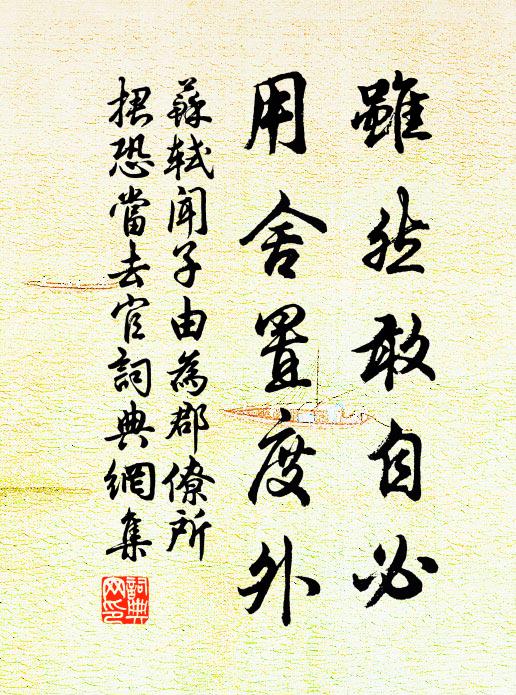 雖然敢自必
用舍置度外
蘇軾聞子由為郡僚所
捃恐當去官詞典網集
詞典網印